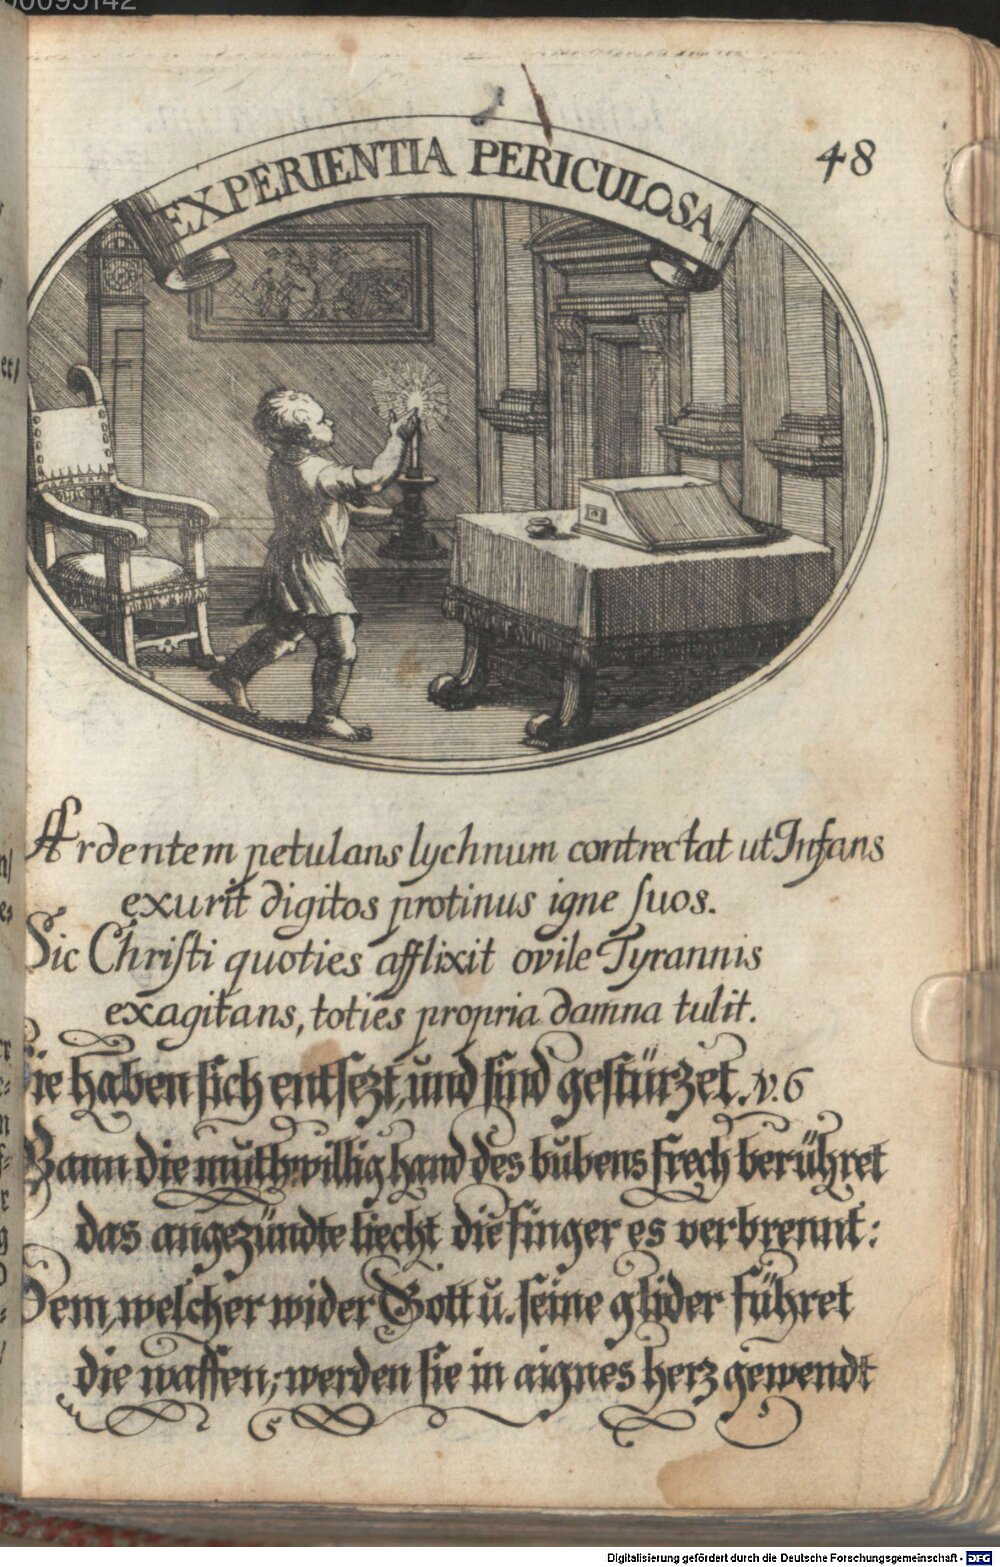 48
EXPERIENTIA PERICULOSA.
Ardentem petulans lychnum contrectat ut Infans
exurit digitos protinus igne suos.
Sic Christi quoties afflixit ovile Tyrannis
exagitans, toties propria damna tulit.
Sie haben sich entsezt, und sind gestürzet. v. 6
Wann die muthwillig hand des bubens frech berühret
das angezündte liecht die finger es verbrennt:
Dem, welcher wider Gott ü. seine glider führet
die waffen; werden sie in aignes herz gewendt
Digitalisierung gefördert durch die Deutsche Forschungsgemeinschaft - DFG